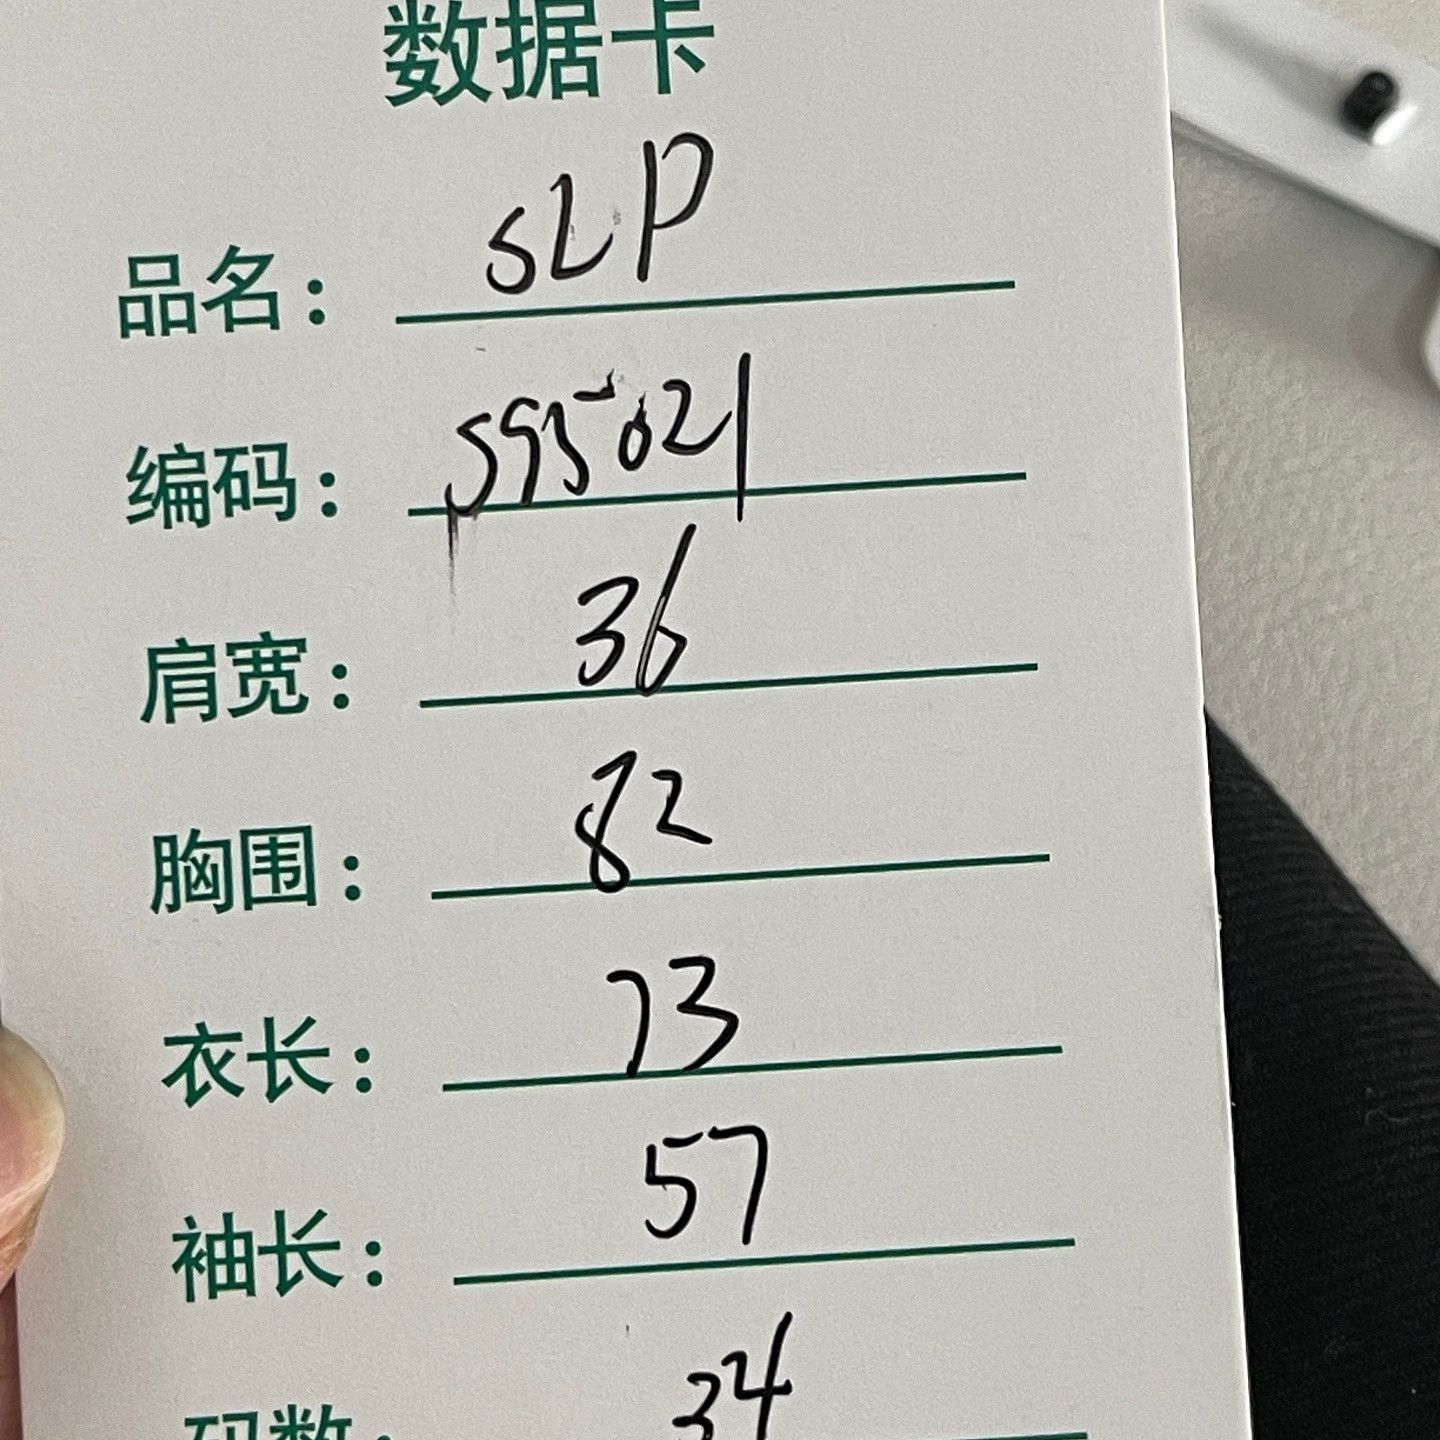 数据卡
品名： SLP
编码： 595021
肩宽： 36
胸围： 82
衣长： 73
袖长： 57
码数： 34